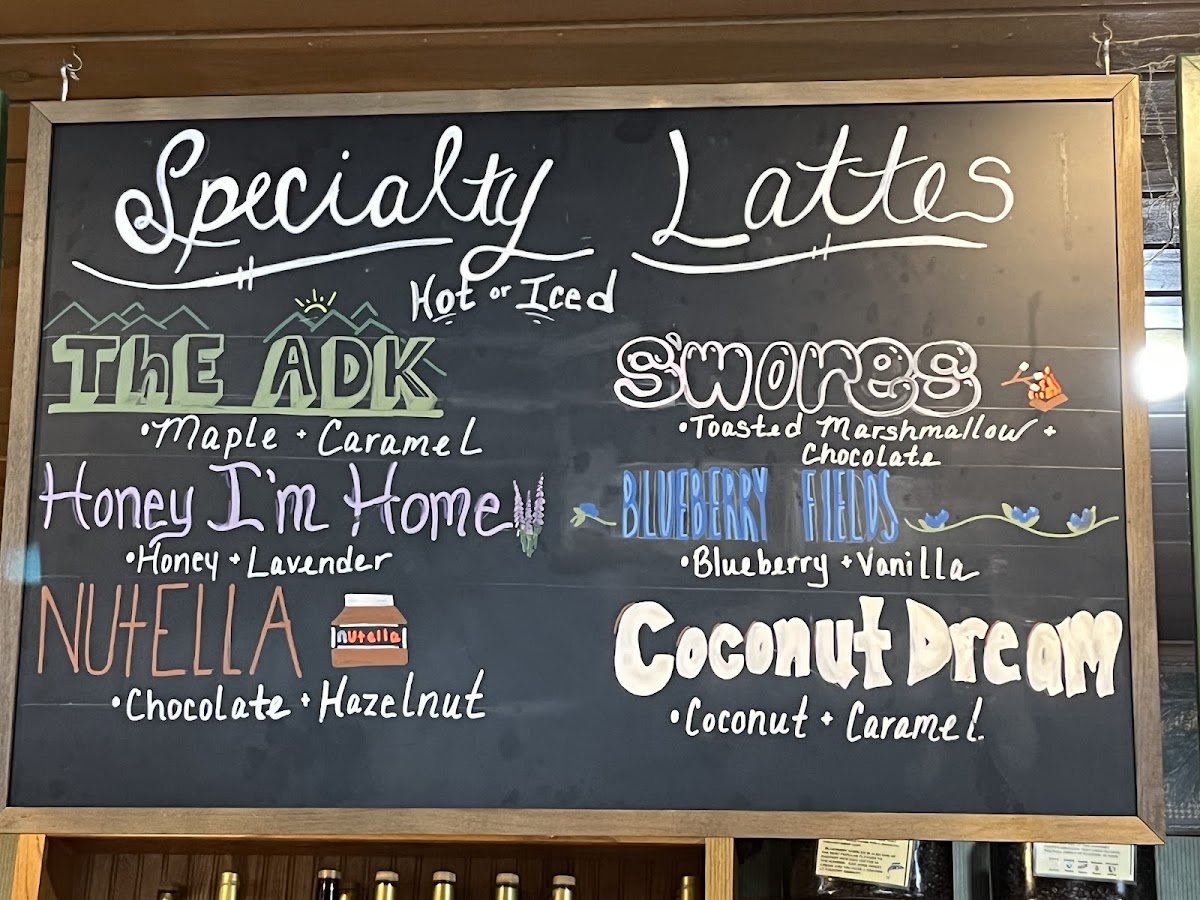 Specialty Lattes
Hot or Iced
ThE ADK
•Maple + Caramel
Honey I'm Home
•Honey + Lavender
NUtELLA
nutella
•Chocolate + Hazelnut
S'mores
•Toasted Marshmallow +
Chocolate
BLUEBERRY FIELDS
•Blueberry + Vanilla
Coconut Dream
•Coconut + Caramel